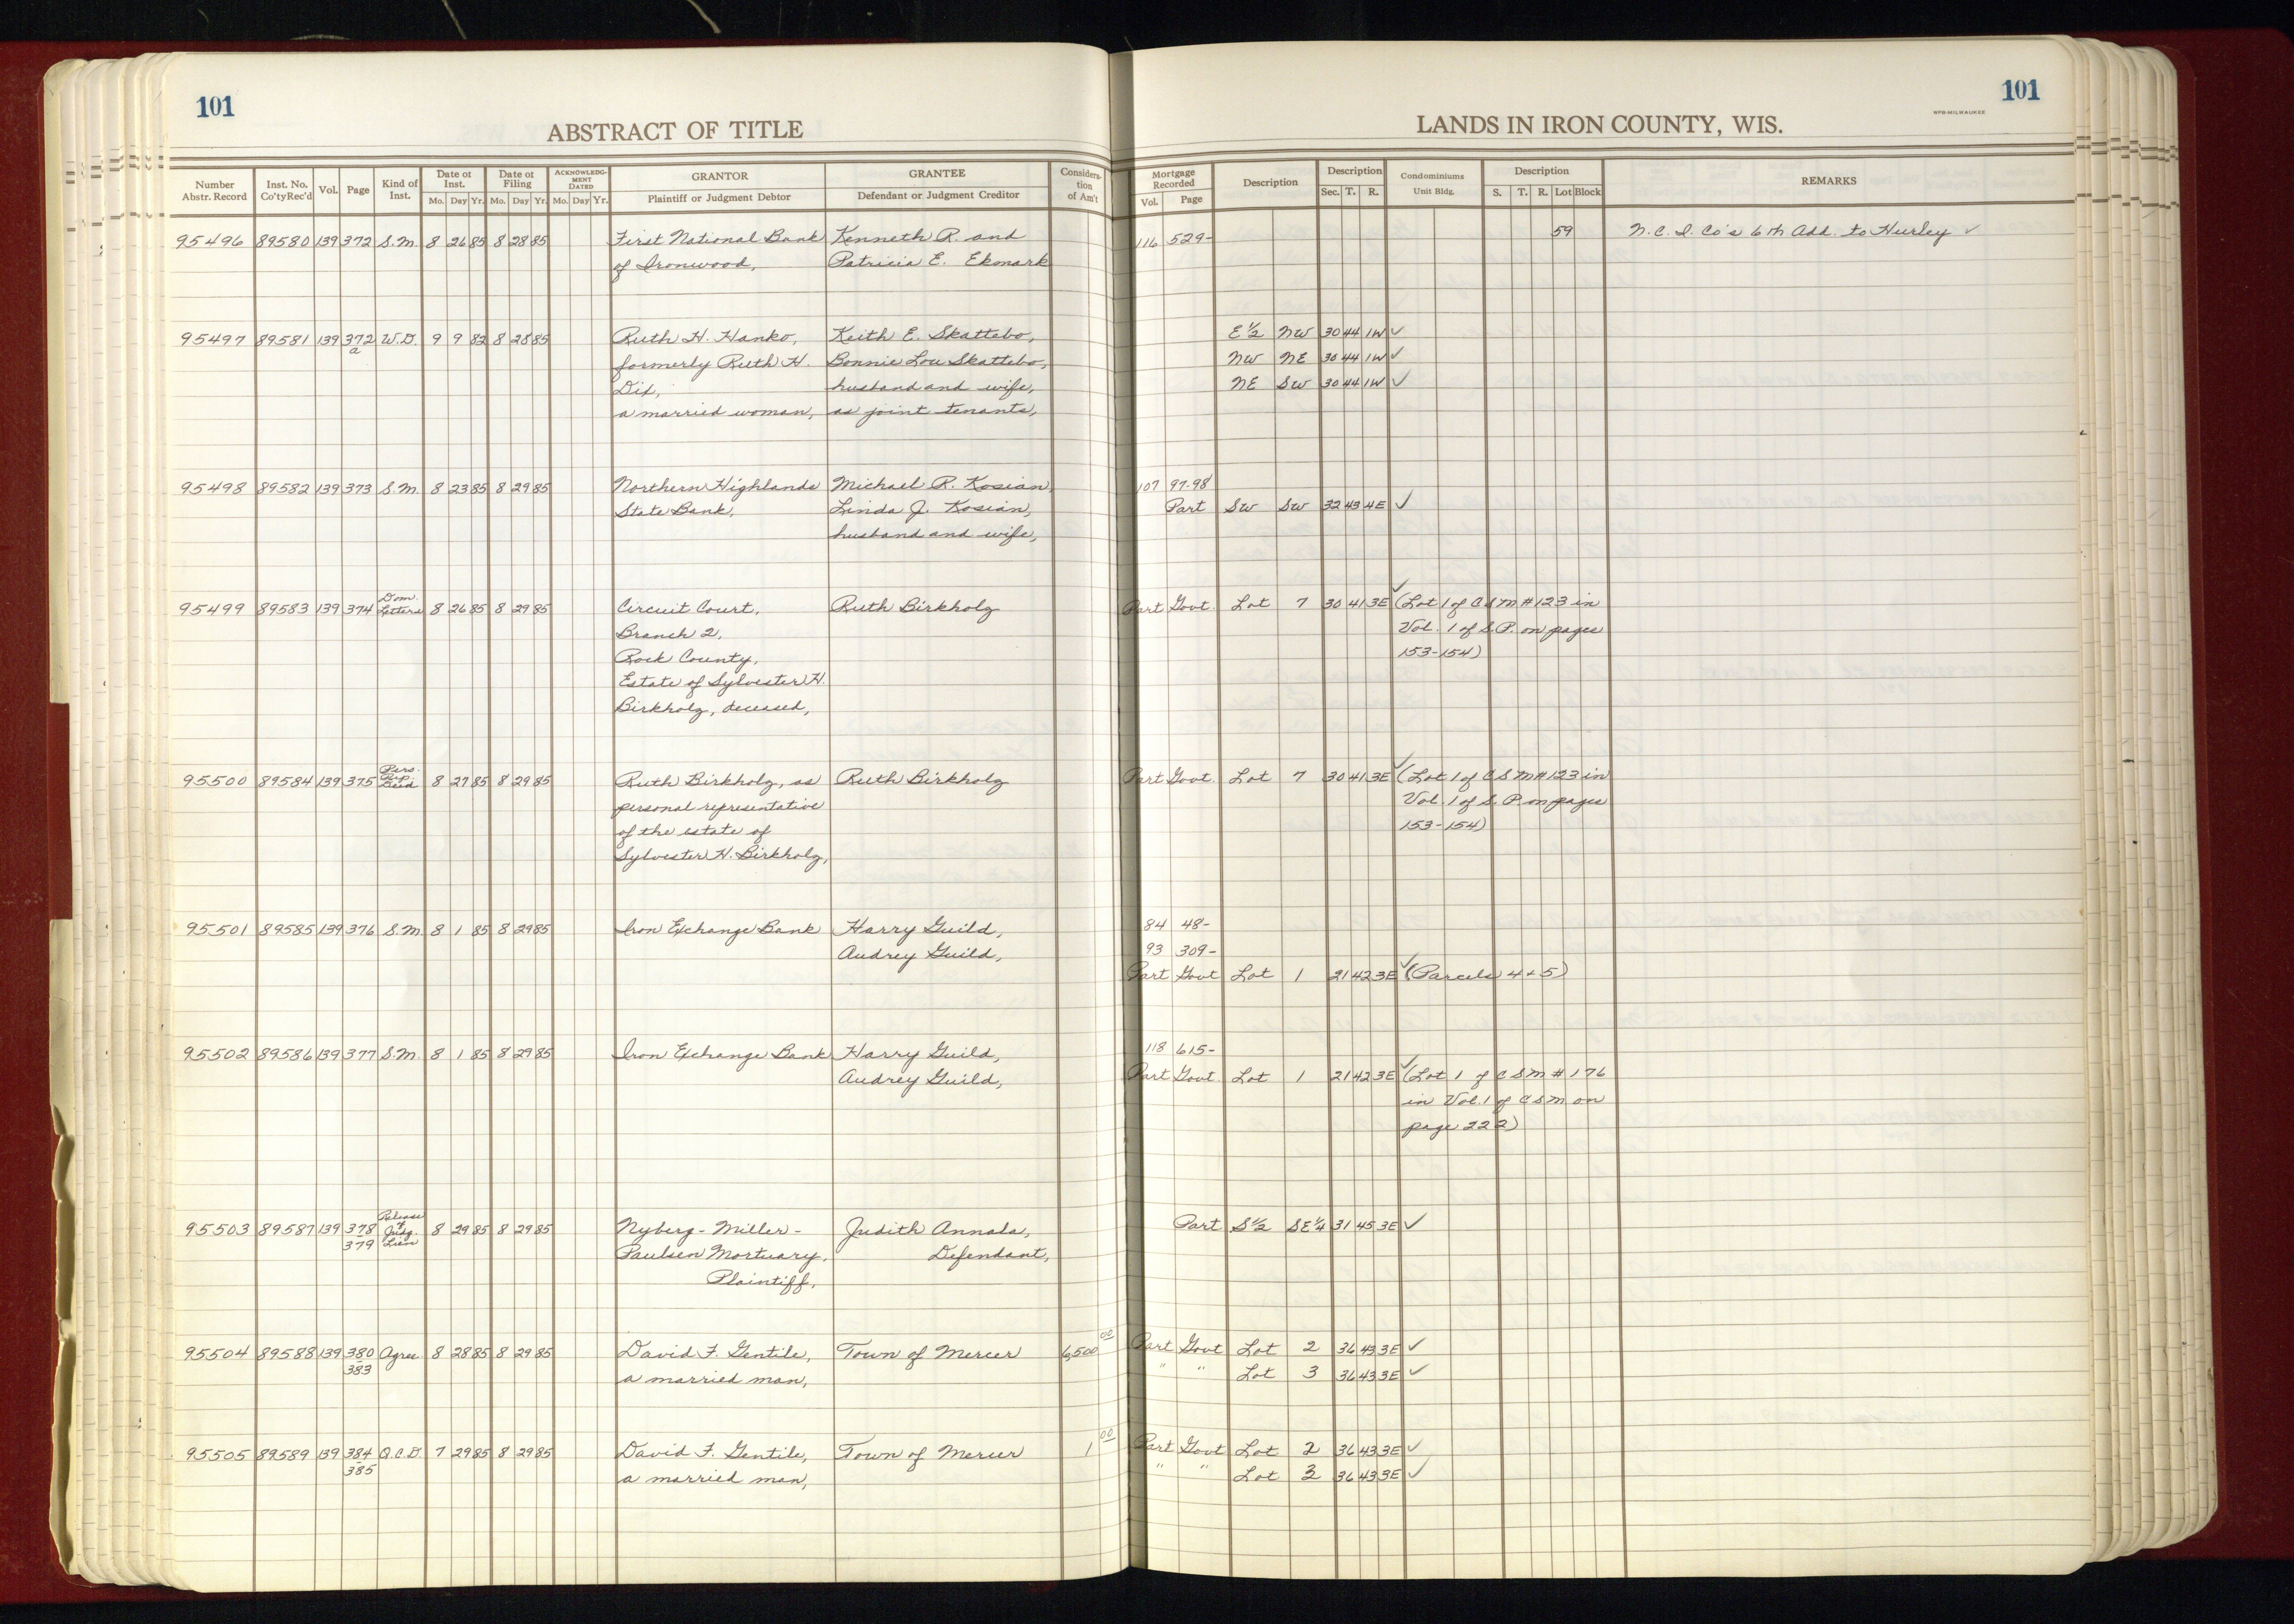 101
101
ABSTRACT OF TITLE
LANDS IN IRON COUNTY, WIS.
WPB-MILWAUKEE
Number Abstr. Record Inst. No. Co'ty Rec'd Vol. Page Kind of Inst. Date of Inst. Mo. Day Yr. Date of Filing Mo. Day Yr. ACKNOWLEDG-MENT DATED Mo. Day Yr. GRANTOR Plaintiff or Judgment Debtor GRANTEE Defendant or Judgment Creditor Consideration of Am't Mortgage Recorded Vol. Page Description Description Sec. T. R. Condominiums Unit Bldg. Description S. T. R. Lot Block REMARKS
95496 89580 139 372 S.M. 8 26 85 8 28 85 First National Bank Kenneth R. and 116 529- 59 N.C.I. Co's 6th Add. to Hurley ✓
of Ironwood, Patricia E. Ekmark
95497 89581 139 372 W.D. 9 9 82 8 28 85 Ruth H. Hanko, Keith E. Skattebo, E½ NW 30 44 1W ✓
a formerly Ruth H. Bonnie Lou Skattebo, NW NE 30 44 1W ✓
Dix, husband and wife, NE SW 30 44 1W ✓
a married woman, as joint tenants,
95498 89582 139 373 S.M. 8 23 85 8 29 85 Northern Highlands Michael R. Kosian, 107 97-98
State Bank, Linda J. Kosian, Part SW SW 32 43 4E ✓
husband and wife,
95499 89583 139 374 Dom. Letters 8 26 85 8 29 85 Circuit Court, Ruth Birkholz Part Govt. Lot 7 30 41 3E ✓ (Lot 1 of CSM #123 in
Branch 2, Vol. 1 of S.P. on pages
Rock County, 153-154)
Estate of Sylvester H.
Birkholz, deceased,
95500 89584 139 375 Pers. Rep. Deed 8 27 85 8 29 85 Ruth Birkholz, as Ruth Birkholz Part Govt. Lot 7 30 41 3E ✓ (Lot 1 of CSM #123 in
personal representative Vol. 1 of S.P. on pages
of the estate of 153-154)
Sylvester H. Birkholz,
95501 89585 139 376 S.M. 8 1 85 8 29 85 Iron Exchange Bank Harry Guild, 84 48-
Audrey Guild, 93 309-
Part Govt Lot 1 21 42 3E ✓ (Parcels 4 + 5)
95502 89586 139 377 S.M. 8 1 85 8 29 85 Iron Exchange Bank Harry Guild, 118 615-
Audrey Guild, Part Govt. Lot 1 21 42 3E ✓ (Lot 1 of CSM #176
in Vol. 1 of CSM on
page 222)
95503 89587 139 378-379 Release of Judg. Lien 8 29 85 8 29 85 Nyberg-Miller- Judith Annala, Part S½ SE¼ 31 45 3E ✓
Paulsen Mortuary, Defendant,
Plaintiff,
95504 89588 139 380-383 Agree 8 28 85 8 29 85 David F. Gentile, Town of Mercer 6,500 00 Part Govt Lot 2 36 43 3E ✓
a married man, " " Lot 3 36 43 3E ✓
95505 89589 139 384-385 Q.C.D. 7 29 85 8 29 85 David F. Gentile, Town of Mercer 1 00 Part Govt Lot 2 36 43 3E ✓
a married man, " " Lot 3 36 43 3E ✓